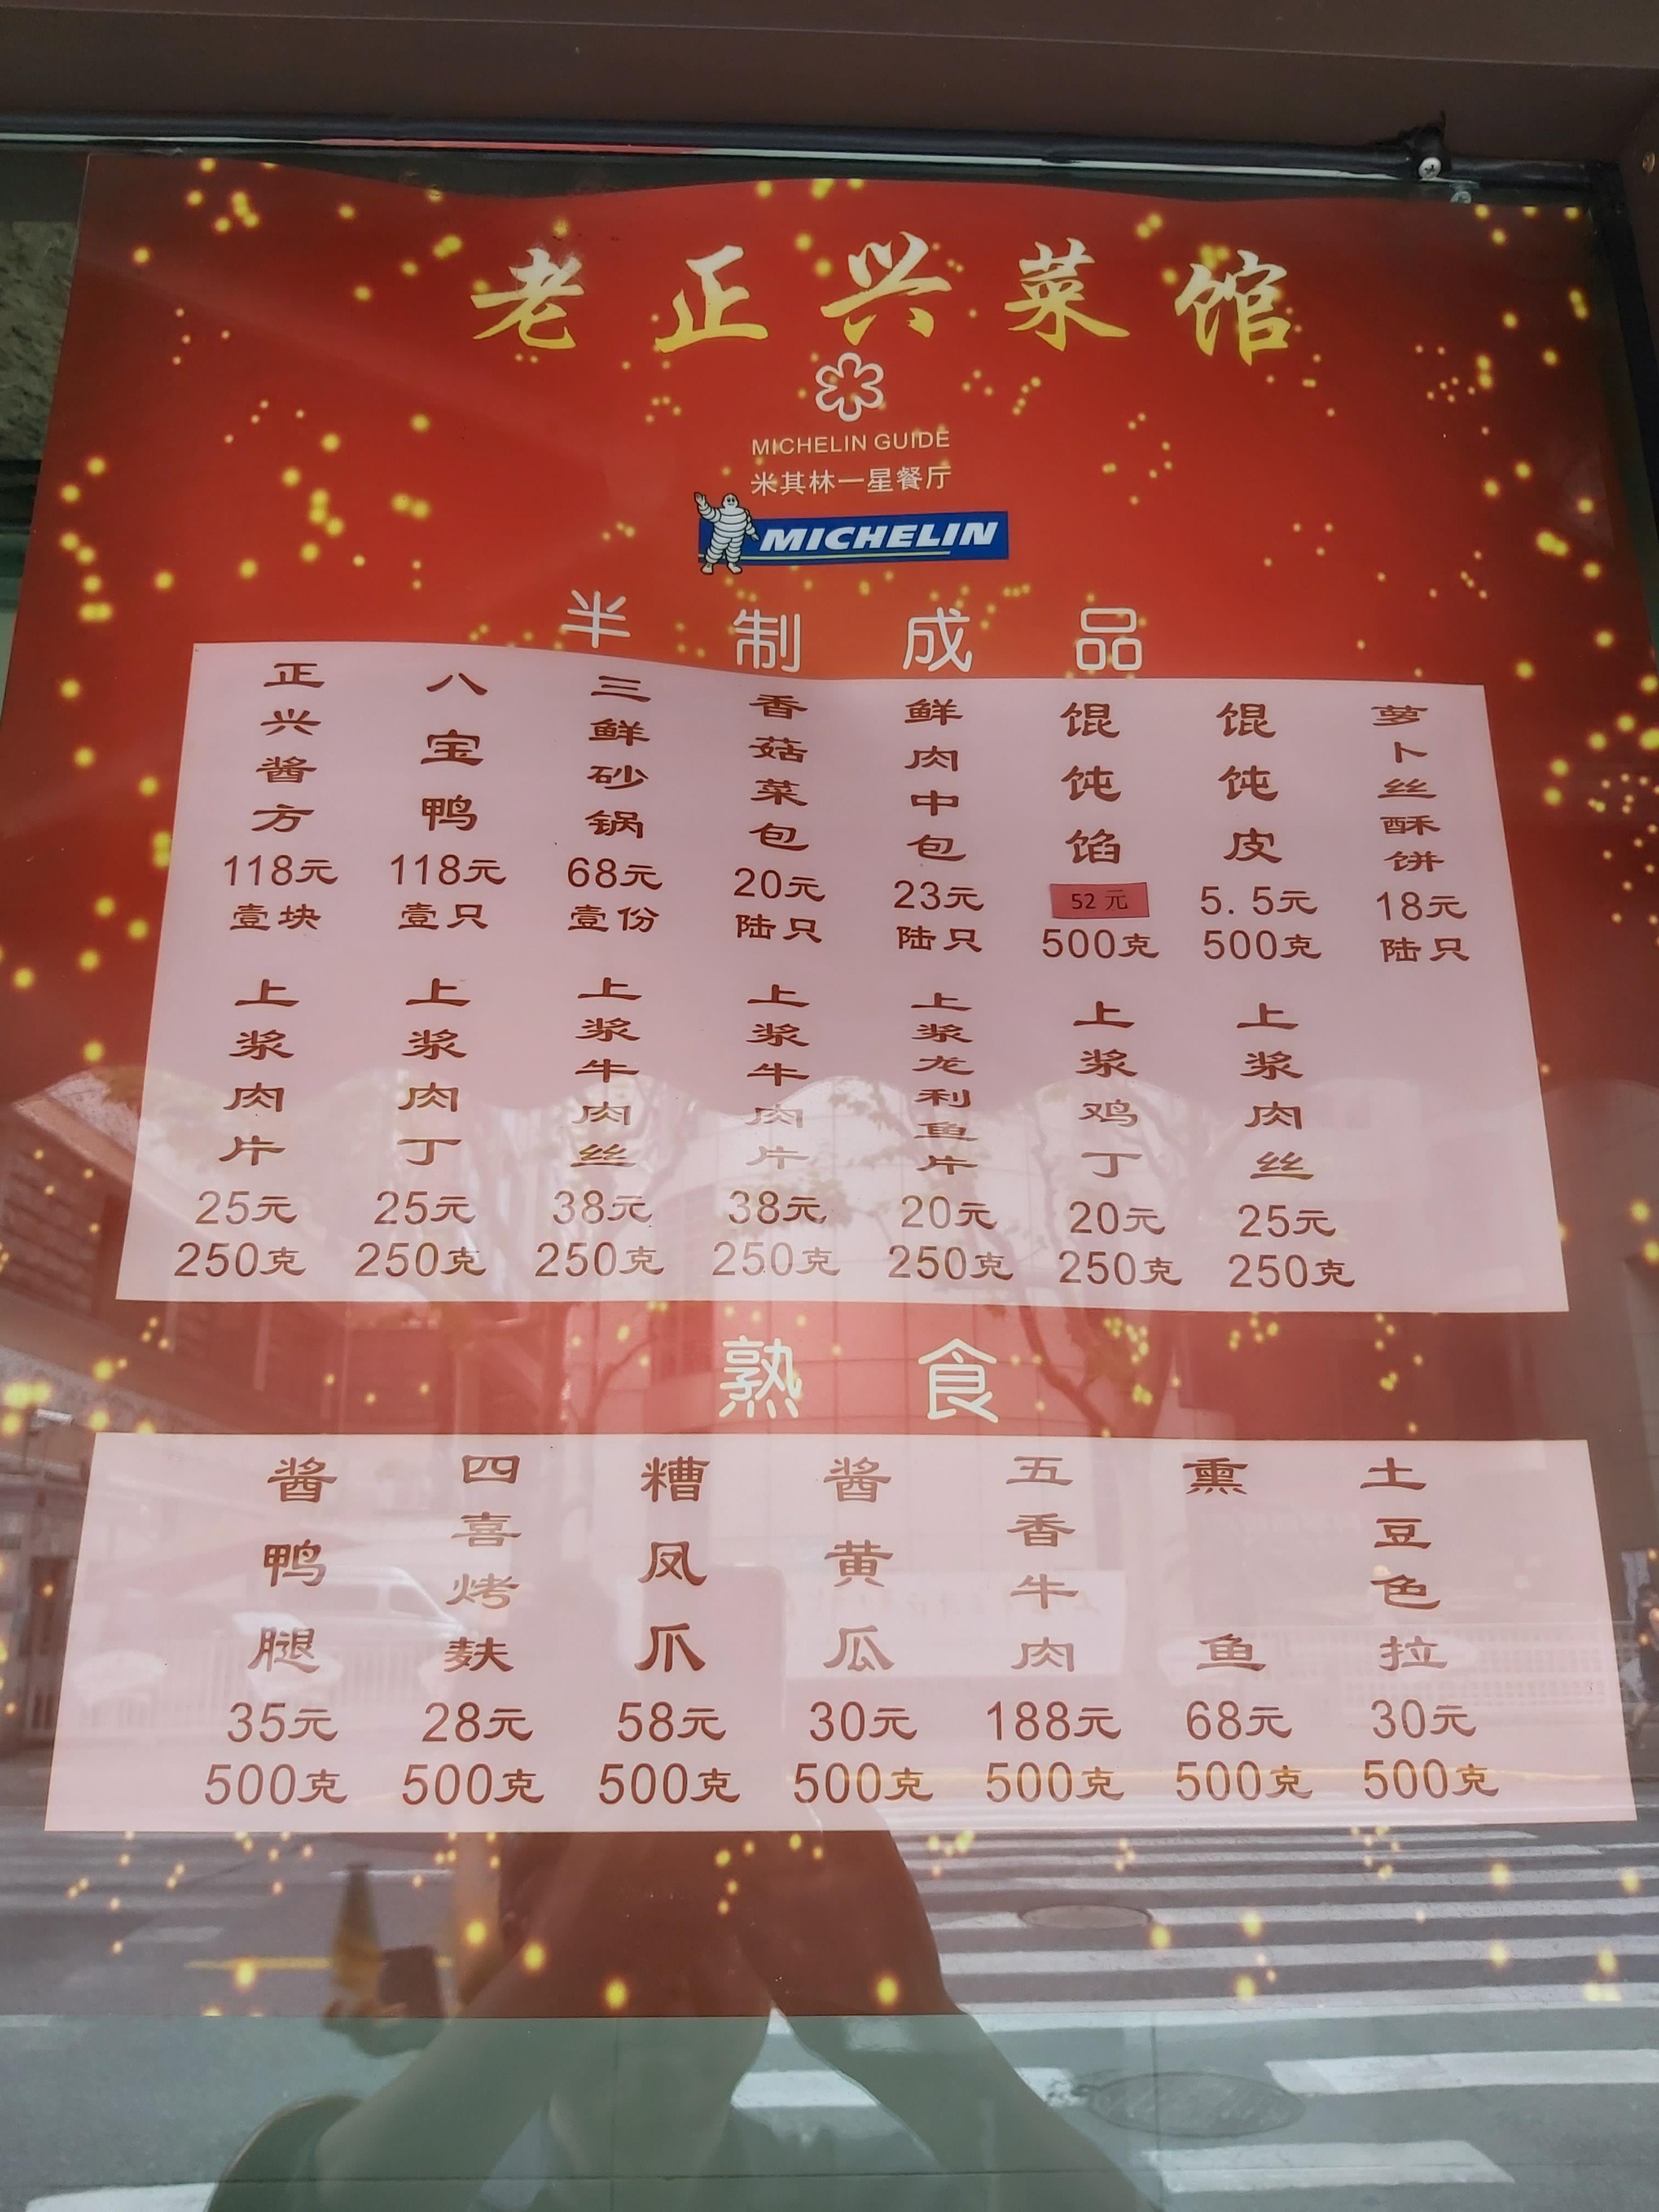 老正兴菜馆
MICHELIN GUIDE
米其林一星餐厅
MICHELIN
半制成品
正兴酱方
118元
壹块
八宝鸭
118元
壹只
三鲜砂锅
68元
壹份
香菇菜包
20元
陆只
鲜肉中包
23元
陆只
馄饨馅
52 元
500克
馄饨皮
5.5元
500克
萝卜丝酥饼
18元
陆只
上浆肉片
25元
250克
上浆肉丁
25元
250克
上浆牛肉丝
38元
250克
上浆牛肉片
38元
250克
上浆龙利鱼片
20元
250克
上浆鸡丁
20元
250克
上浆肉丝
25元
250克
熟食
酱鸭腿
35元
500克
四喜烤麸
28元
500克
糟凤爪
58元
500克
酱黄瓜
30元
500克
五香牛肉
188元
500克
熏鱼
68元
500克
土豆色拉
30元
500克